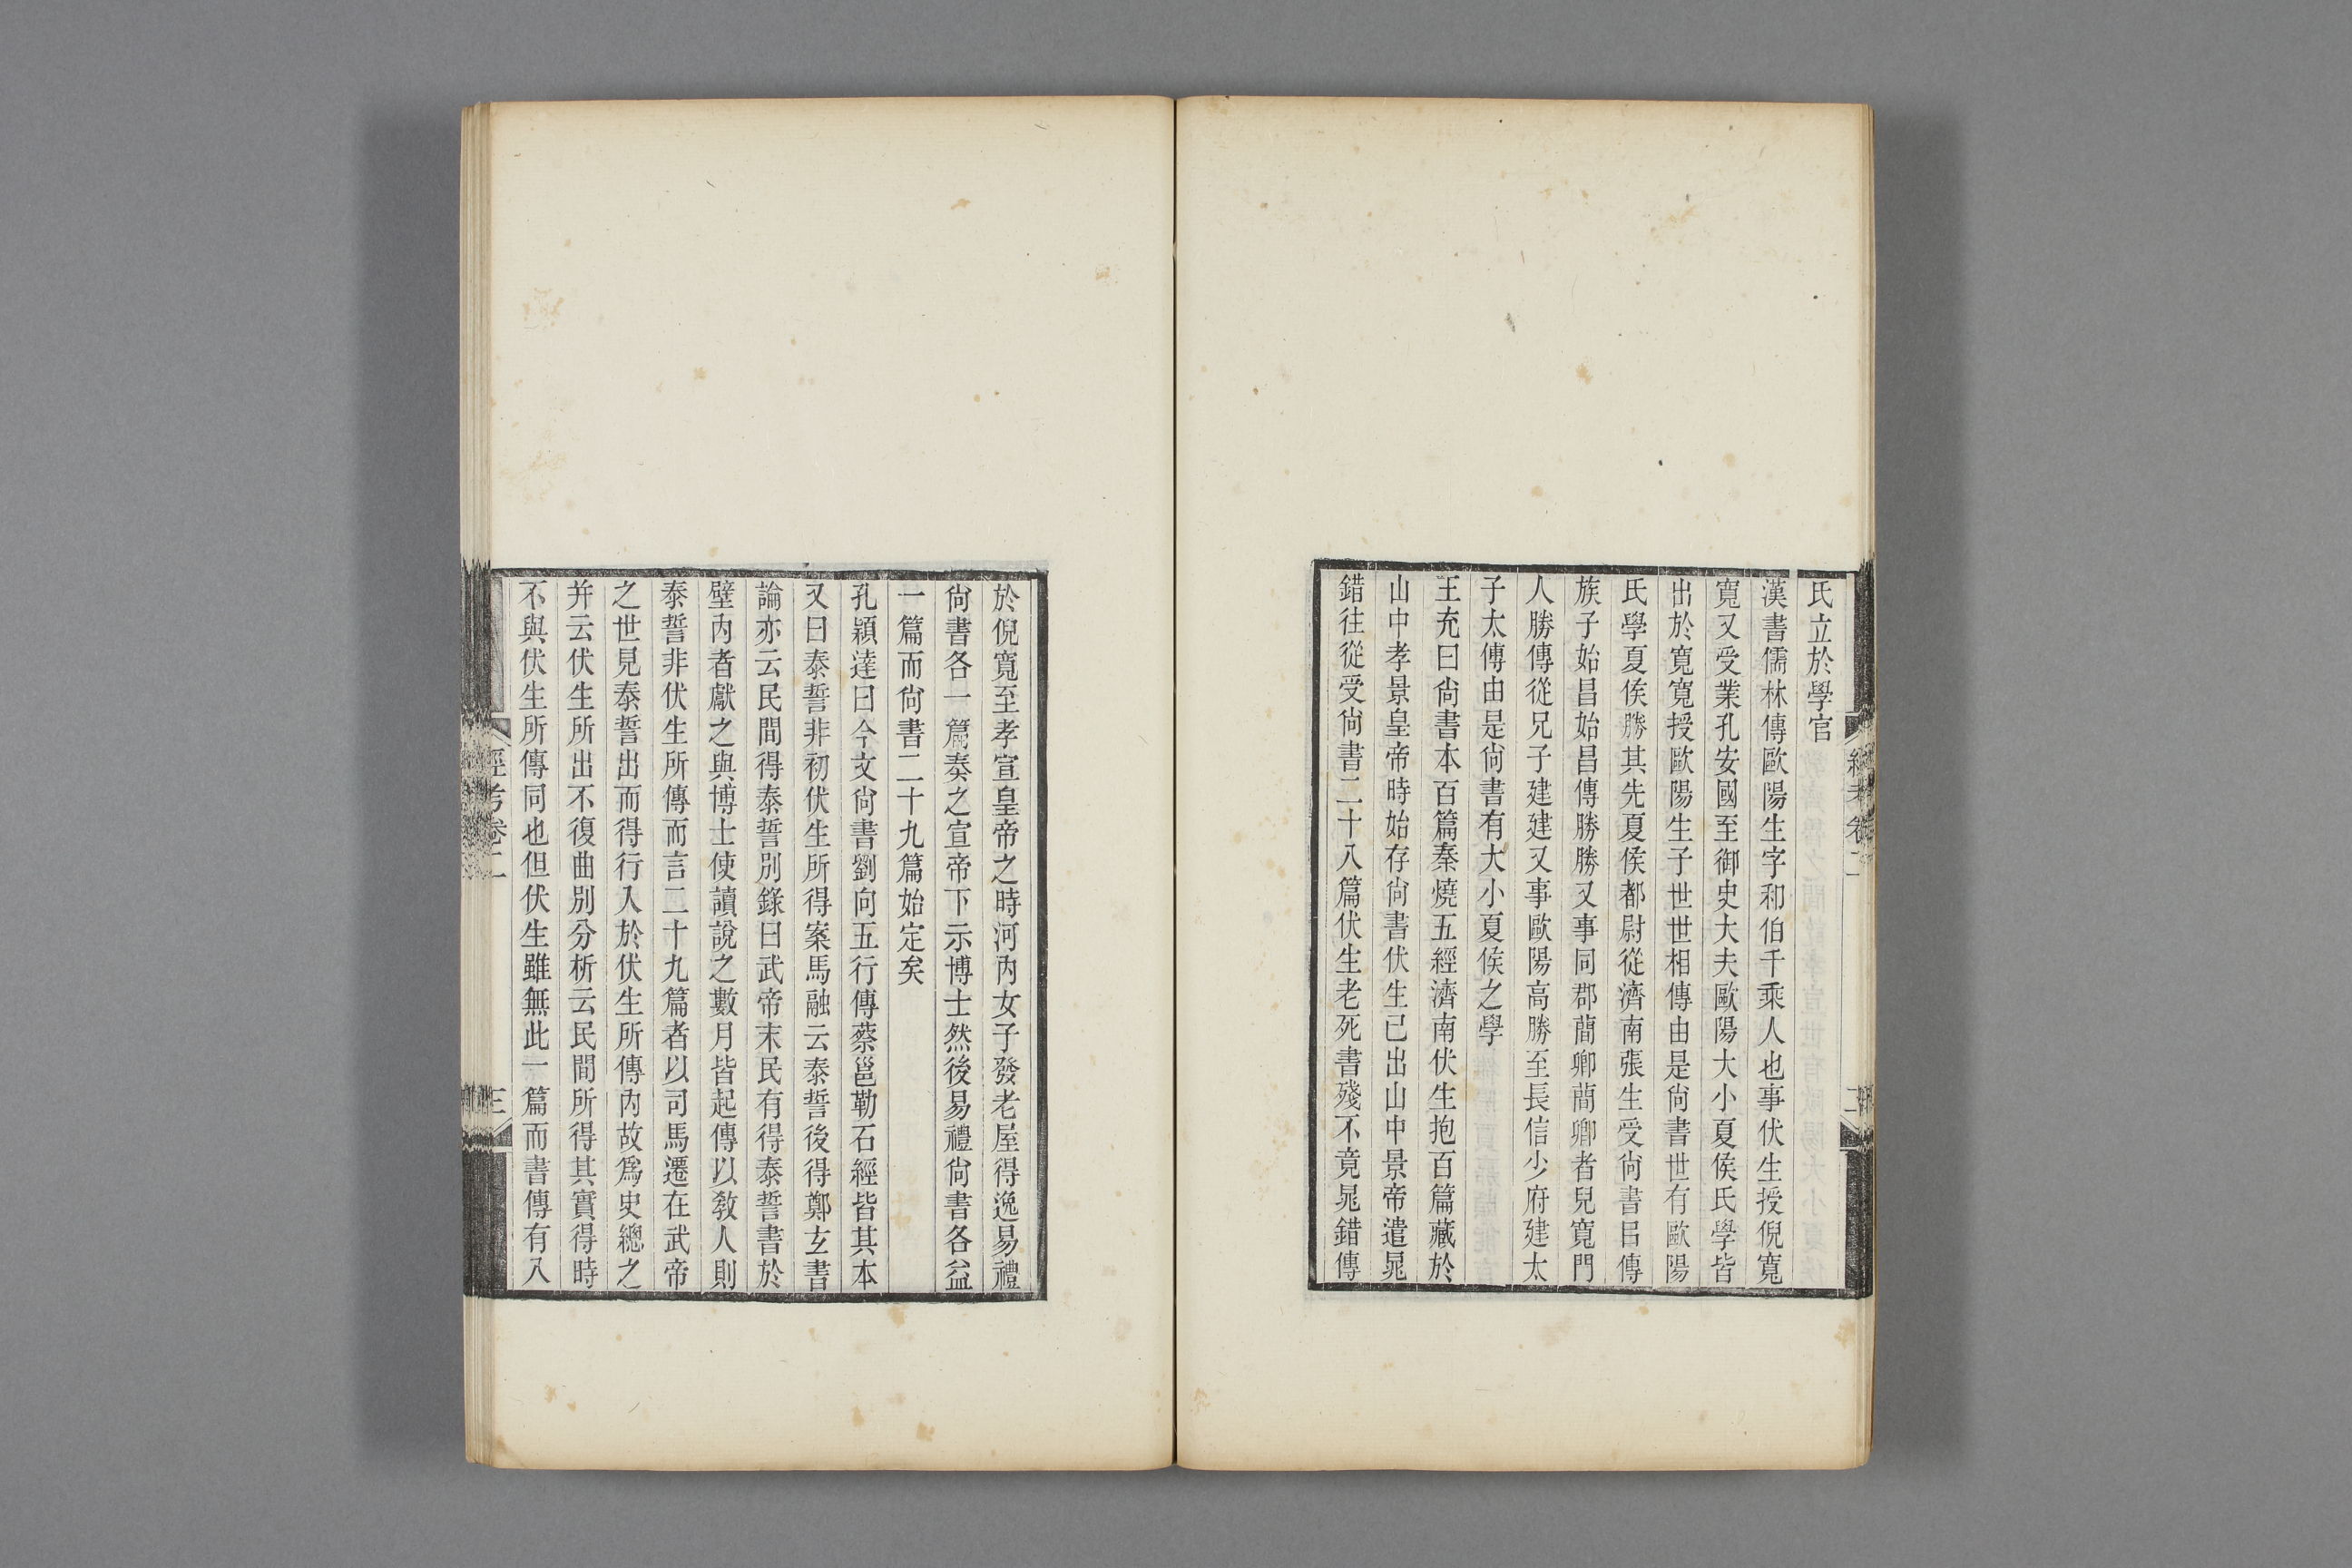 氏立於學官
漢書儒林傳歐陽生字和伯千乘人也事伏生授倪寬
寬又受業孔安國至御史大夫歐陽大小夏侯氏學皆
出於寬寬授歐陽生子世世相傳由是尙書世有歐陽
氏學夏侯勝其先夏侯都尉從濟南張生受尙書㠯傳
族子始昌始昌傳勝勝又事同郡蕑卿蕑卿者兒寬門
人勝傳從兄子建建又事歐陽高勝至長信少府建太
子太傅由是尙書有大小夏侯之學
王充曰尙書本百篇秦燒五經濟南伏生抱百篇藏於
山中孝景皇帝時始存尙書伏生已出山中景帝遣晁
錯往從受尙書二十八篇伏生老死書殘不竟晁錯傳
於倪寬至孝宣皇帝之時河內女子發老屋得逸易禮
尙書各一篇奏之宣帝下示博士然後易禮尙書各益
一篇而尙書二十九篇始定矣
孔穎達曰今文尙書劉向五行傳蔡邕勒石經皆其本
又曰泰誓非初伏生所得案馬融云泰誓後得鄭玄書
論亦云民間得泰誓別錄曰武帝末民有得泰誓書於
壁內者獻之與博士使讀說之數月皆起傳以敎人則
泰誓非伏生所傳而言二十九篇者以司馬遷在武帝
之世見泰誓出而得行入於伏生所傳內故爲史總之
并云伏生所出不復曲別分析云民間所得其實得時
不與伏生所傳同也但伏生雖無此一篇而書傳有八
經考卷二
三